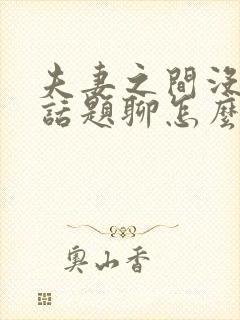 夫妻之間沒
話題聊怎麼
奧山香